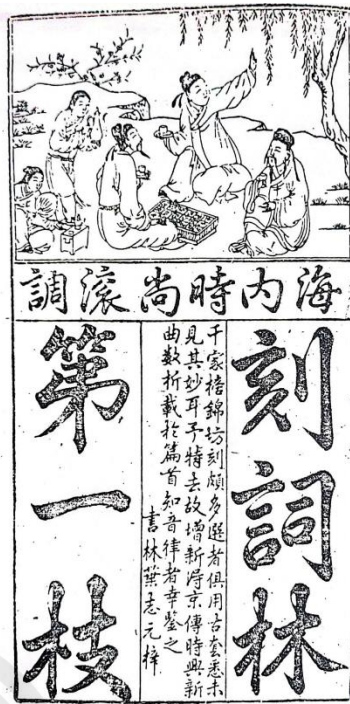 海内時尚滾調
刻詞林
千家摘錦坊刻頗多選者俱用古套悉未
見其妙耳予特去故增新得京傳時興新
曲數折載於篇首知音律者幸鑒之
書林葉志元梓
第一枝